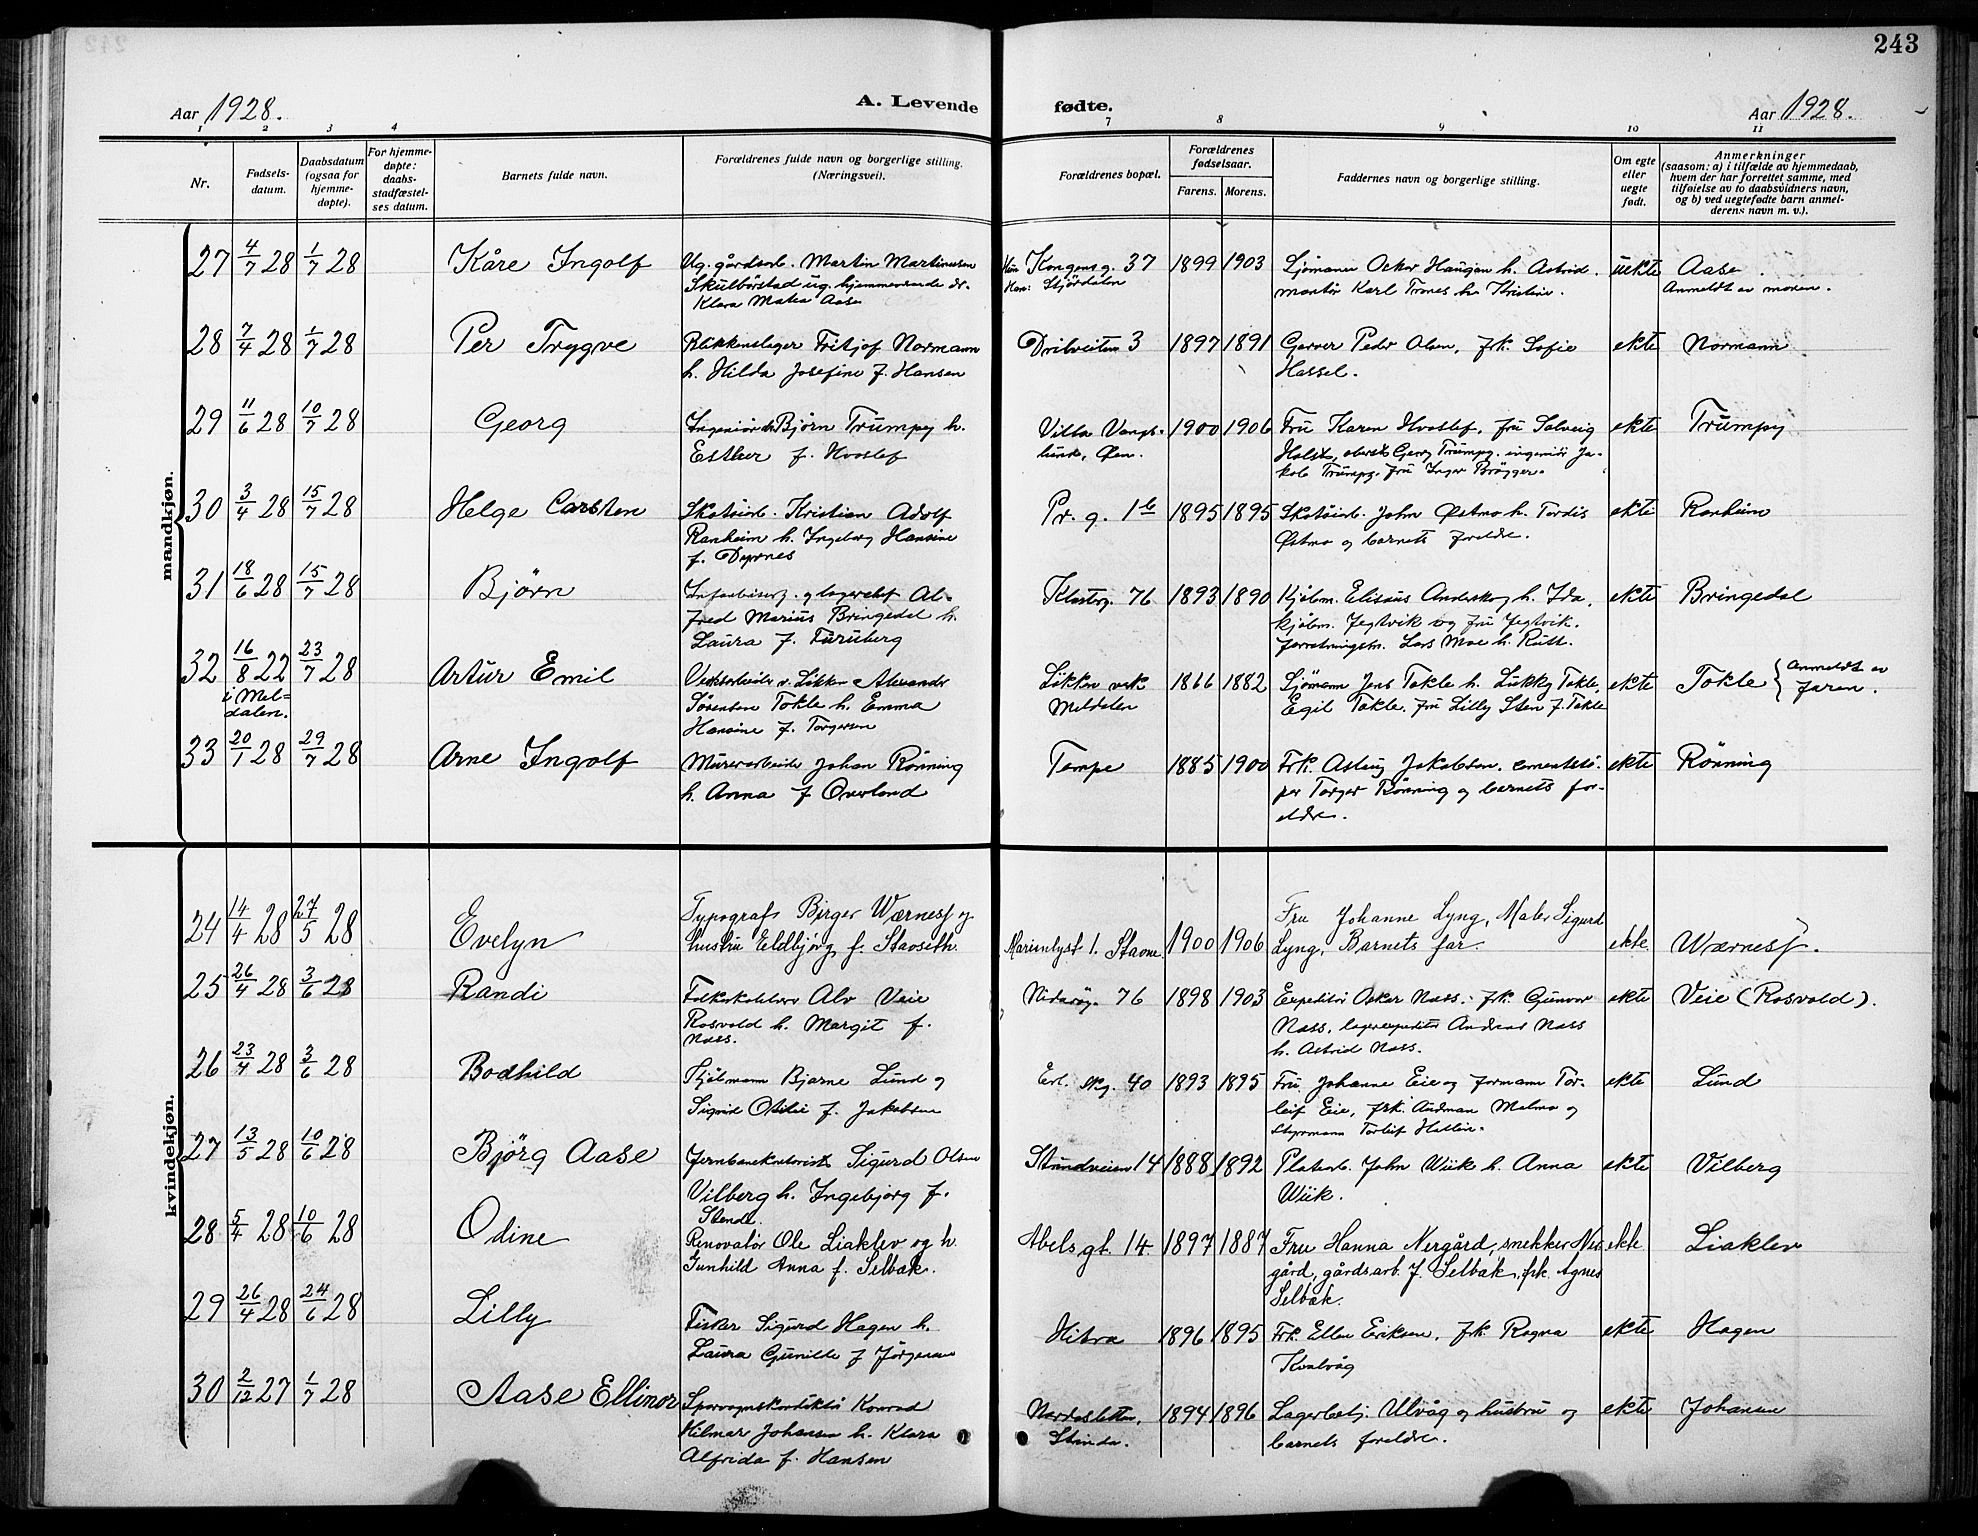 243
Aar 1928.
A. Levende fødte.
Aar 1928.
1 2 3 4 7 8 9 10 11
Nr.
Fødsels-
datum.
Daabsdatum
(ogsaa for
hjemme-
døpte).
For hjemme-
døpte:
daabs-
stadfæstel-
ses datum.
Barnets fulde navn.
Forældrenes fulde navn og borgerlige stilling.
(Næringsvei).
Forældrenes bopæl.
Forældrenes
fødselsaar.
Farens. Morens.
Faddernes navn og borgerlige stilling.
Om egte
eller
uegte
født.
Anmerkninger
(saasom: a) i tilfælde av hjemmedaab,
hvem der har forrettet samme, med
tilføielse av to daabsvidners navn,
og b) ved uegtefødte barn anmel-
derens navn m. v.).
mandkjøn.
27 4/7 28 1/7 28 Kåre Ingolf
Ug. gårdsarb. Martin Martinusen
Skulbørstad ug. hjemmeværende
Klara Matea Aase
Kongensg. 37
Han: Stjørdalen
1899 1903
Sjömann Oskar Haugan h. Astrid.
montör Karl Trones h. Kristine.
uekte
Aase.
Anmeldt av moren.
28 7/4 28 1/7 28 Per Trygve
Blikkenslager Fritjof Normann
h. Hilda Josefine f. Hansen
3 1897 1891
Garver Peder Olsen, frk. Sofie
Hassel.
ekte Normann
29 11/6 28 10/7 28 Georg
Ingeniör Björn Trumpy h.
Esther f. Hvoslef
Villa
Øen.
1900 1906
Fru Karen Hvoslef, fru Solveig
Holst, oberst Georg Trumpy, ingeniör Ja-
kob Trumpy. fru Inger Brögger.
ekte Trumpy
30 3/4 28 15/7 28 Helge Carsten
Skotöiarb. Kristian Adolf
Ranheim h. Ingeborg Hansine
f. Dyrnes
Pr. g. 1b 1895 1895
Skotöiarb. John Østmo h. Tordis
Østmo og barnets foreldre.
ekte Ranheim
31 18/6 28 15/7 28 Bjørn
og lagerchef Al-
fred Marius Bringedal h.
Laura f. Furuberg
Klosterg. 76 1893 1890
Kjöbm. Elisæus Anderskog h. Ida,
kjöbm. Jegtvik og fru Jegtvik.
forretningsm. Lars Moe h. Rutt.
ekte Bringedal
32 16/8 22 23/7 28 Artur Emil
i Mel-
dalen.
v. Løkken Alexander
Sörensen Tokle h. Emma
Hansine f. Torgersen
Løkken verk
Meldalen
1866 1882
Sjömann Jens Tokle h. Lukky Tokle,
Egil Tokle. fru Lilly Sten f. Tokle
ekte Tokle {Anmeldt av
faren.
33 20/1 28 29/7 28 Arne Ingolf
Murerarbeider Johan Rönning
h. Anna f Overland
Tempe 1885 1900
Frk. Aslaug Jakobsen. cementstö-
per Torger Rönning og barnets for-
eldre.
ekte Rönning
kvindekjøn.
24 14/4 28 27/5 28 Evelyn
Typograf Birger Wærnes og
hustru Eldbjörg f. Stavseth.
Marienlyst 1. Stavne 1900 1906
Fru Johanne Lyng, Maler Sigurd
Lyng, Barnets far
ekte Wærnes.
25 26/4 28 3/6 28 Randi
Folkeskolelærer Alv Veie
Rosvold h. Margit f.
Næss.
76 1898 1903
Expeditör Oskar Næss. frk Gunvor
Næss, lagerexpeditör Andreas Næss
h. Astrid Næss.
ekte Veie (Rosvold).
26 23/4 28 3/6 28 Bodhild
Sjömann Bjarne Lund og
Sigrid Otilie f. Jakobsen
Erl. skg. 40 1893 1895
Fru Johanne Eie og formann Tor-
leif Eie, frk. Audman Malmo og
Styrmann Torleif Hallein.
ekte Lund
27 13/5 28 10/6 28 Bjørg Aase
Jernbanekontorist Sigurd Olsen
Vilberg h. Ingebjørg f.
Stende.
14 1888 1892
Platearb. John Wiik h. Anna
Wiik.
ekte Vilberg
28 5/4 28 10/6 28 Odine
Renovatör Ole Liaklev og h.
Gunhild Anna f. Selbak.
Abels gt. 14. 1897 1887
Fru Hanna Nergård, snekker Ner-
gård, gårdsarb. J. Selbak, frk. Agnes
Selbak.
ekte Liaklev
29 26/4 28 24/6 28 Lilly
Fisker Sigurd Hagen h.
Laura Gunilde f Jörgensen
Hitra 1896 1895
Frk. Ellen Eriksen, frk. Ragna
Kvalvåg
ekte Hagen
30 2/12 27 1/7 28 Aase Ellinor
Sporvognskonduktör Konrad
Hilmar Johansen h. Klara
Alfrida f. Hansen
Nardosletten,
Strinda.
1894 1896
Lagerbetj. Ulvåg og hustru og
barnets foreldre.
ekte Johansen